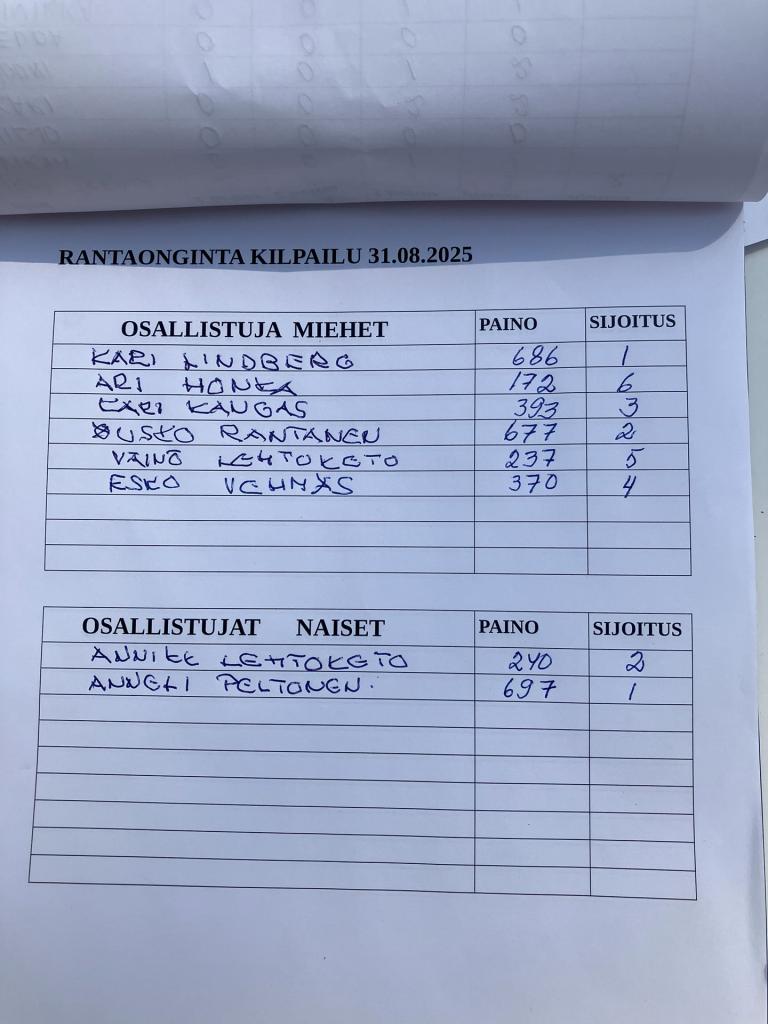 RANTAONGINTA KILPAILU 31.08.2025
OSALLISTUJA MIEHET PAINO SIJOITUS
KARI LINDBERG 686 1
ARI HONKA 172 6
KARI KANGAS 393 3
OUSKO RANTANEN 677 2
VÄINÖ LEHTOKETO 237 5
ESKO VEHNÄS 370 4
OSALLISTUJAT NAISET PAINO SIJOITUS
ANNIKK LEHTOKETO 240 2
ANNELI PELTONEN. 697 1